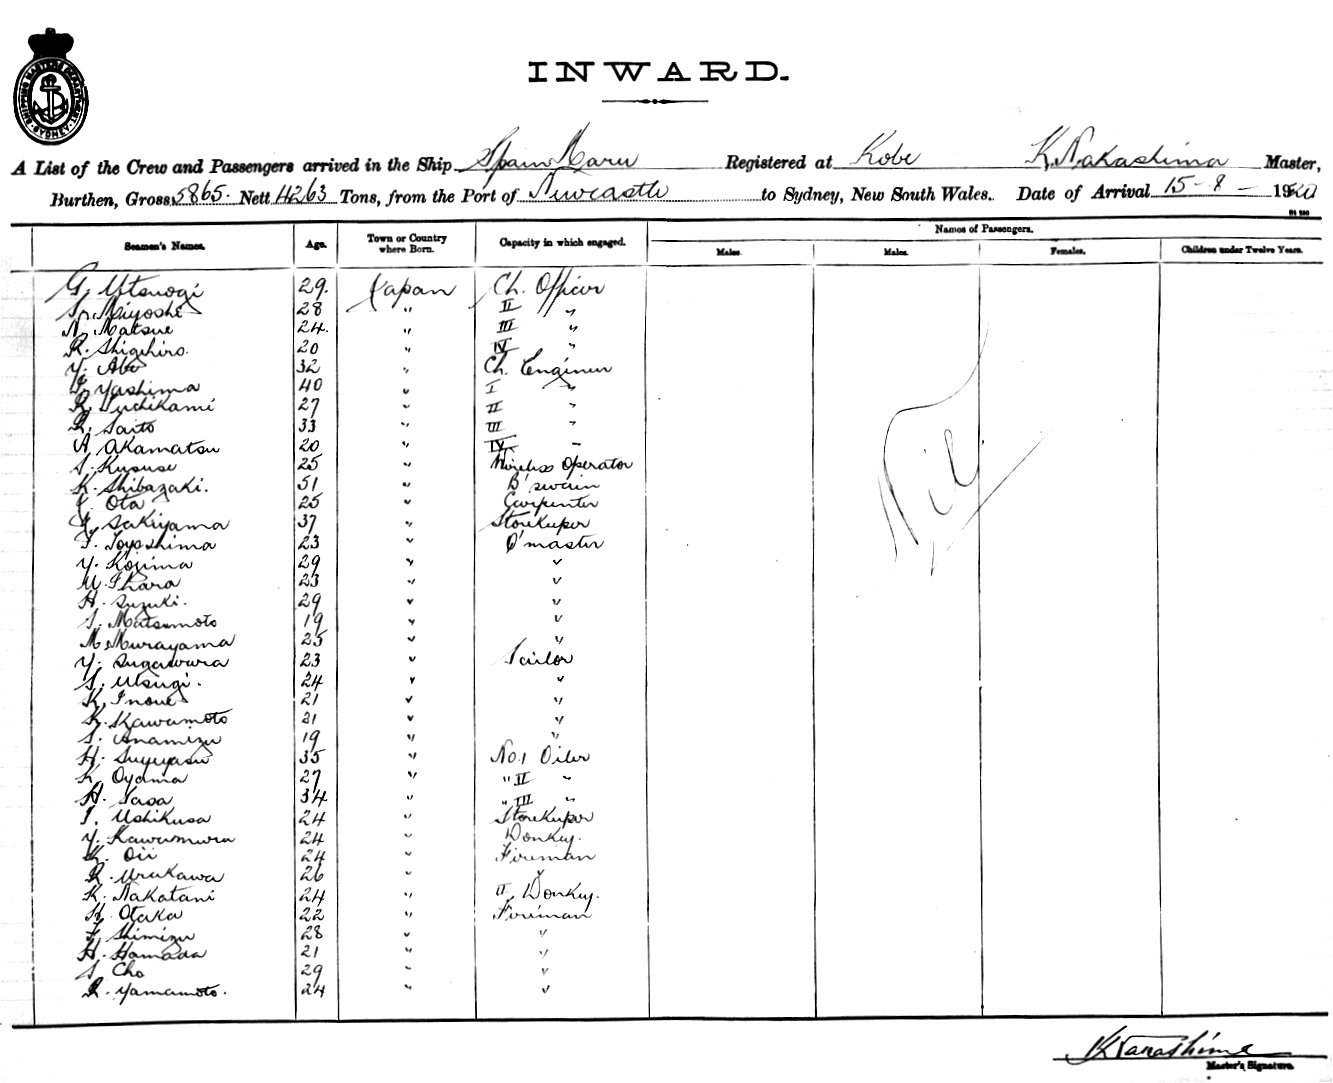 SHIPPING MASTERS DEPARTMENT SYDNEY
INWARD.
A List of the Crew and Passengers arrived in the Ship Spain Maru Registered at Kobe K. Nakashima Master,
Burthen, Gross 5865. Nett 4263 Tons, from the Port of Newcastle to Sydney, New South Wales. Date of Arrival 15-8-1920
Names of Passengers.
Seamen's Names. Age. Town or Country where Born. Capacity in which engaged. Males. Males. Females. Children under Twelve Years.
G. Utsuogi 29. Japan Ch. Officer
S. Miyoshi 28 " II "
N. Matsue 24. " III "
R. Shigihiro. 20 " IV "
Y. Abe 32 " Ch. Engineer
Yashima 40 " I "
K. 27 " II "
K. Saito 33 " III "
A. Akamatsu 20 " IV "
S. Kususe 25 " Wireless Operator
K. Shibazaki. 51 " B'swain
Ota 25 " Carpenter
Sakiyama 37 " Storekeeper
T. Toyoshima 23 " Q'master
Y. Kojima 29 " "
U. Ihara 23 " "
H. Suzuki. 29 " "
S. Matsumoto 19 " "
M. Murayama 25 " "
Y. Sugawara 23 " Sailor
S. Utsugi. 24 " "
K. Inoue 21 " "
K. Kawamoto 21 " "
S. Anamizu 19 " "
H. 35 " No. 1 Oiler
K. Oyama 27 " " II "
H. Sasa 34 " " III "
I. Ushikusa 24 " Storekeeper
Y. Kawamura 24 " Donkey.
K. Oii 24 " Fireman
R. Urakawa 26 " "
K. Nakatani 24 " II Donkey.
H. Otaka 22 " Fireman
Shimizu 28 " "
H. Hamada 21 " "
S. Cho 29 " "
R. Yamamoto. 24 " "
Nil
K Nakashima
Master's Signature.